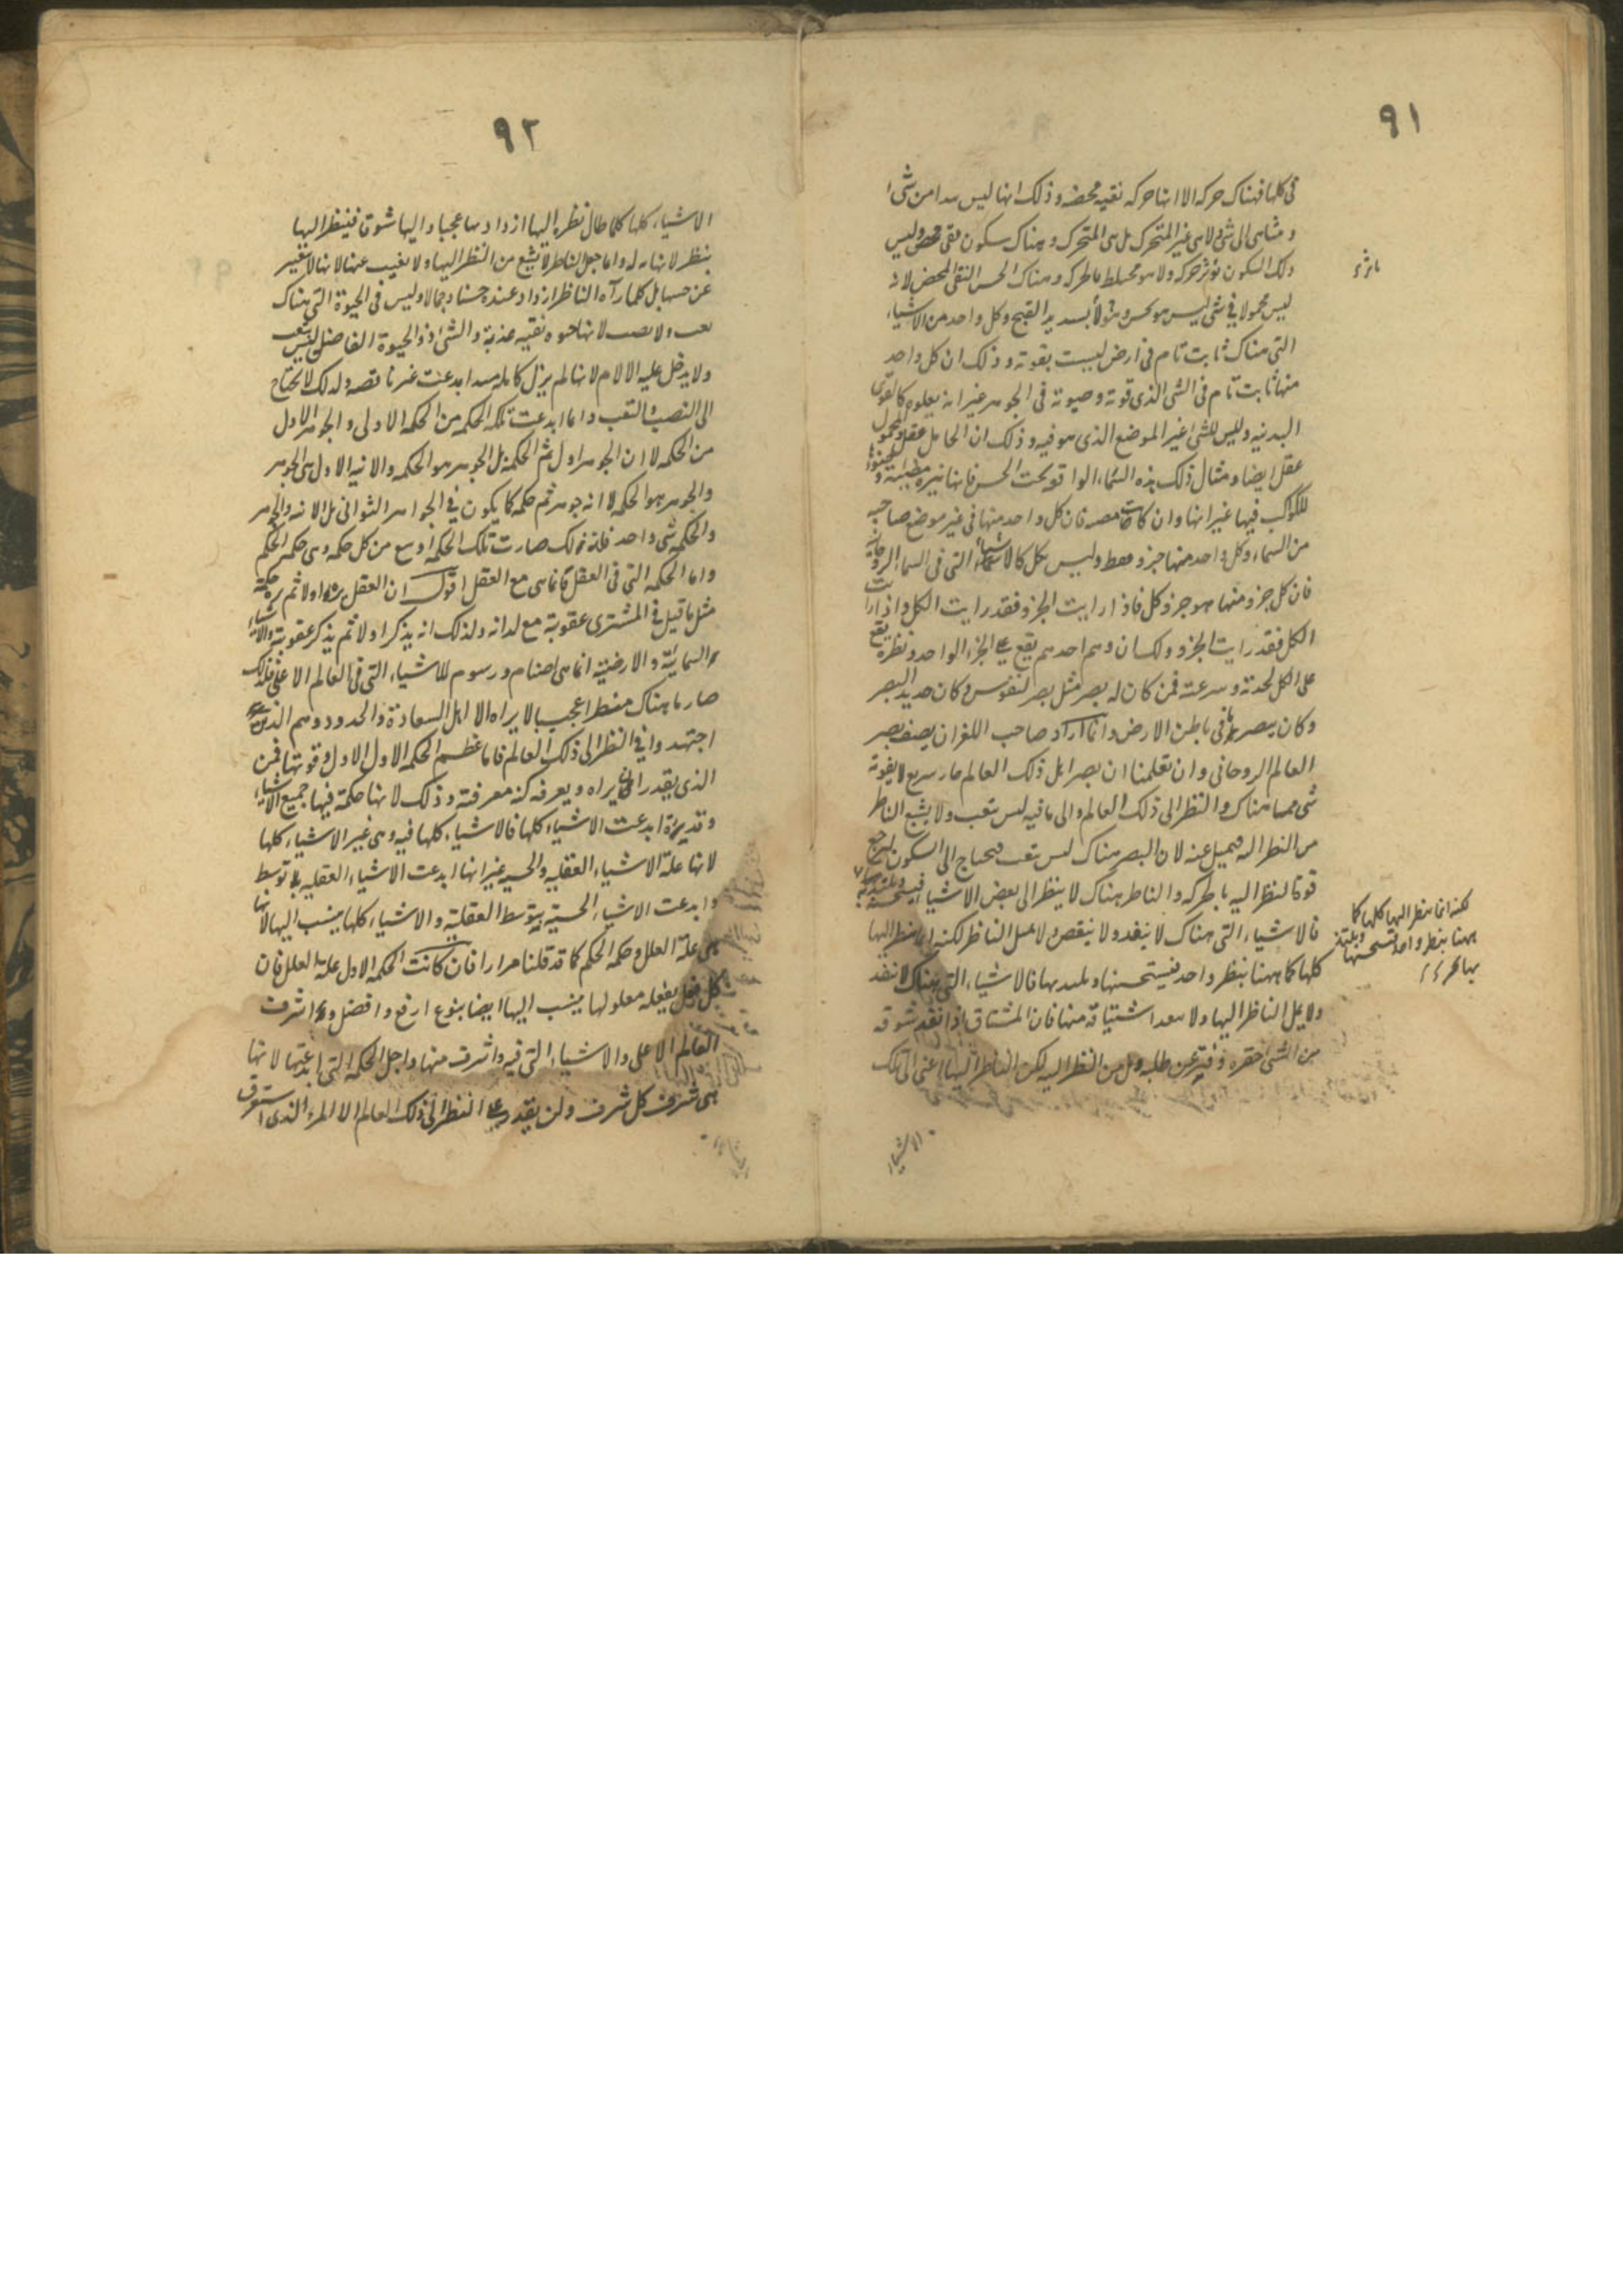 ٩١
فى كلها فهناك حركه الا انها حركه نقيه محضه وذلك انها ليس سدا من شى
و متناهى الى شى ولا هى غير المتحرك بل هى المتحرك وهناك سكون نقى محض وليس
ذلك السكون بوثر حركه ولا هو مختلط بالحركه وهناك الحسن النقى المحض لانه
ليس محمولا فى شى ليس هو بحسن القبيح وكل واحد من الاشياء
التى هناك ثابت تام فى ارض ليست بقوته وذلك ان كل واحد
منها ثابت تام فى الشى الذى قوته وحيوته فى الجوهر غير انه يعلوه كالقوى
البدنيه وليس للشى غير الموضع الذى هو فيه وذلك ان الحامل عقل والمحمول
عقل ايضا ومثال ذلك هذه السماء الواقعة تحت الحس فانها نيره مضيئة و
للكواكب فيها غير انها وان كانت مضيه فان كل واحد منها فى غير موضع صاحبه
من السماء وكل واحد منها جزو فقط وليس بكل كالاشياء التى فى السماء الروحانيه
فان كل جزو منها هو جزو وكل فاذا رايت الجزو فقد رايت الكل واذا رايت
الكل فقد رايت الجزو ولكسان وهم احدهم يقع على الجزء الواحد ونظره يقع
على الكل لحدته وسرعته فمن كان له بصر مثل بصر لنفوس وكان حديد البصر
وكان يبصر ما فى باطن الارض وانما اراد صاحب اللغز ان يصف بصر
العالم الروحانى وان تعلمنا ان بصر اهل ذلك العالم حار سريع لا يفوته
شى مما هناك والنظر الى ذلك العالم والى ما فيه ليس بتعب ولا يشبع الناظر
من النظر اليه فيميل عنه لان البصر هناك ليس بتعب فيحتاج الى السكون ليرجع
قوة لنظر اليه بالحركه والناظر هناك لا ينظر الى بعض الاشياء فيستحسنه ويلتذ به
فالاشياء التى هناك لا ينفد ولا ينقص ولا يمل الناظر لكنه انما ينظر اليها
كلها كما ههنا بنظر واحد فيستحسنها ويلتذ بها فالاشياء التى هناك لا تنفد
ولا يمل الناظر اليها ولا ينفد اشتياقه منها فان المشتاق اذا نفد شوقه
من الشى احقره وفتر عن طلبه ومل من النظر اليه لكن الناظر اليها اعنى الى تلك
الاشياء
لكنه انما ينظر اليها كلها كما
ههنا بنظر واحد فيستحسنها ويلتذ
بها
٩٢
الاشياء كلها كلما طال نظره اليها ازداد بها عجبا واليها شوقا فينظر اليها
بنظر لا نهايه له وانما جعل الناظر لا يشبع من النظر اليها ولا يغيب عنها لانها لا تتغير
عن حسنها بل كلما رآه الناظر ازداد عنده حسنا وجمالا وليس فى الحيوة التى هناك
تعب ولا نصب لانها حيوه نقيه عذبة والشى اذ ذا الحيوة الفاضله ليس يتعب
ولا يدخل عليه الالام لانها لم يزل كامله منذ ابدعت غير ناقصه ولذلك لا يحتاج
الى النصب والتعب وانما ابدعت تلك الحكمه من الحكمه الاولى والجوهر الاول
من الحكمه لا ان الجوهر اول ثم الحكمة بل الجوهر هو الحكمه والانيه الاولى هى الجوهر
والجوهر هو الحكمه لا انه جوهر ثم حكمه كما يكون فى الجواهر الثوانى بل الانيه والجوهر
والحكمه شى واحد فلذلك صارت تلك الحكمه اوسع من كل حكمه وهى حكمه الحكم
واما الحكمه التى فى العقل فانما هى مع العقل اقول ان العقل بدا اولا ثم بدت حكمة
مثل ما قيل فى المشترى عقوبة مع لذاته ولذلك انه يذكر اولا ثم يذكر عقوبته والاشياء
السمائيه والارضيه انما هى اصنام ورسوم للاشياء التى فى العالم الاعلى فلذلك
صار ما هناك منظر عجيب لا يراه الا اهل السعادة والجدود وهم الذين
اجتهدوا فى النظر الى ذلك العالم فاما عظم الحكمه الاولى الاول وقوتها فمن
الذى يقدر ان يراه ويعرفه كنه معرفته وذلك لانها حكمة فيها جميع الاشياء
وقديرة ابدعت الاشياء كلها فالاشياء كلها فيه وهى غير الاشياء كلها
لانها علة الاشياء العقليه والحسيه غير انها ابدعت الاشياء العقليه بلا توسط
وابدعت الاشياء الحسية بتوسط العقلية والاشياء كلها ينسب اليها لانها
هى علة العلل وحكمه الحكم كما قد قلنا مرارا فان كانت الحكمه الاولى علة العلل فان
كل فعل يفعله معلولها ينسب اليها ايضا بنوع ارفع وافضل واشرف
العالم الاعلى والاشياء التى فيه واشرف منها واجل الحكمه التى ابدعتها لانها
هى شرف كل شرف ولن يقدر على النظر الى ذلك العالم الا المرء الذى استغرق